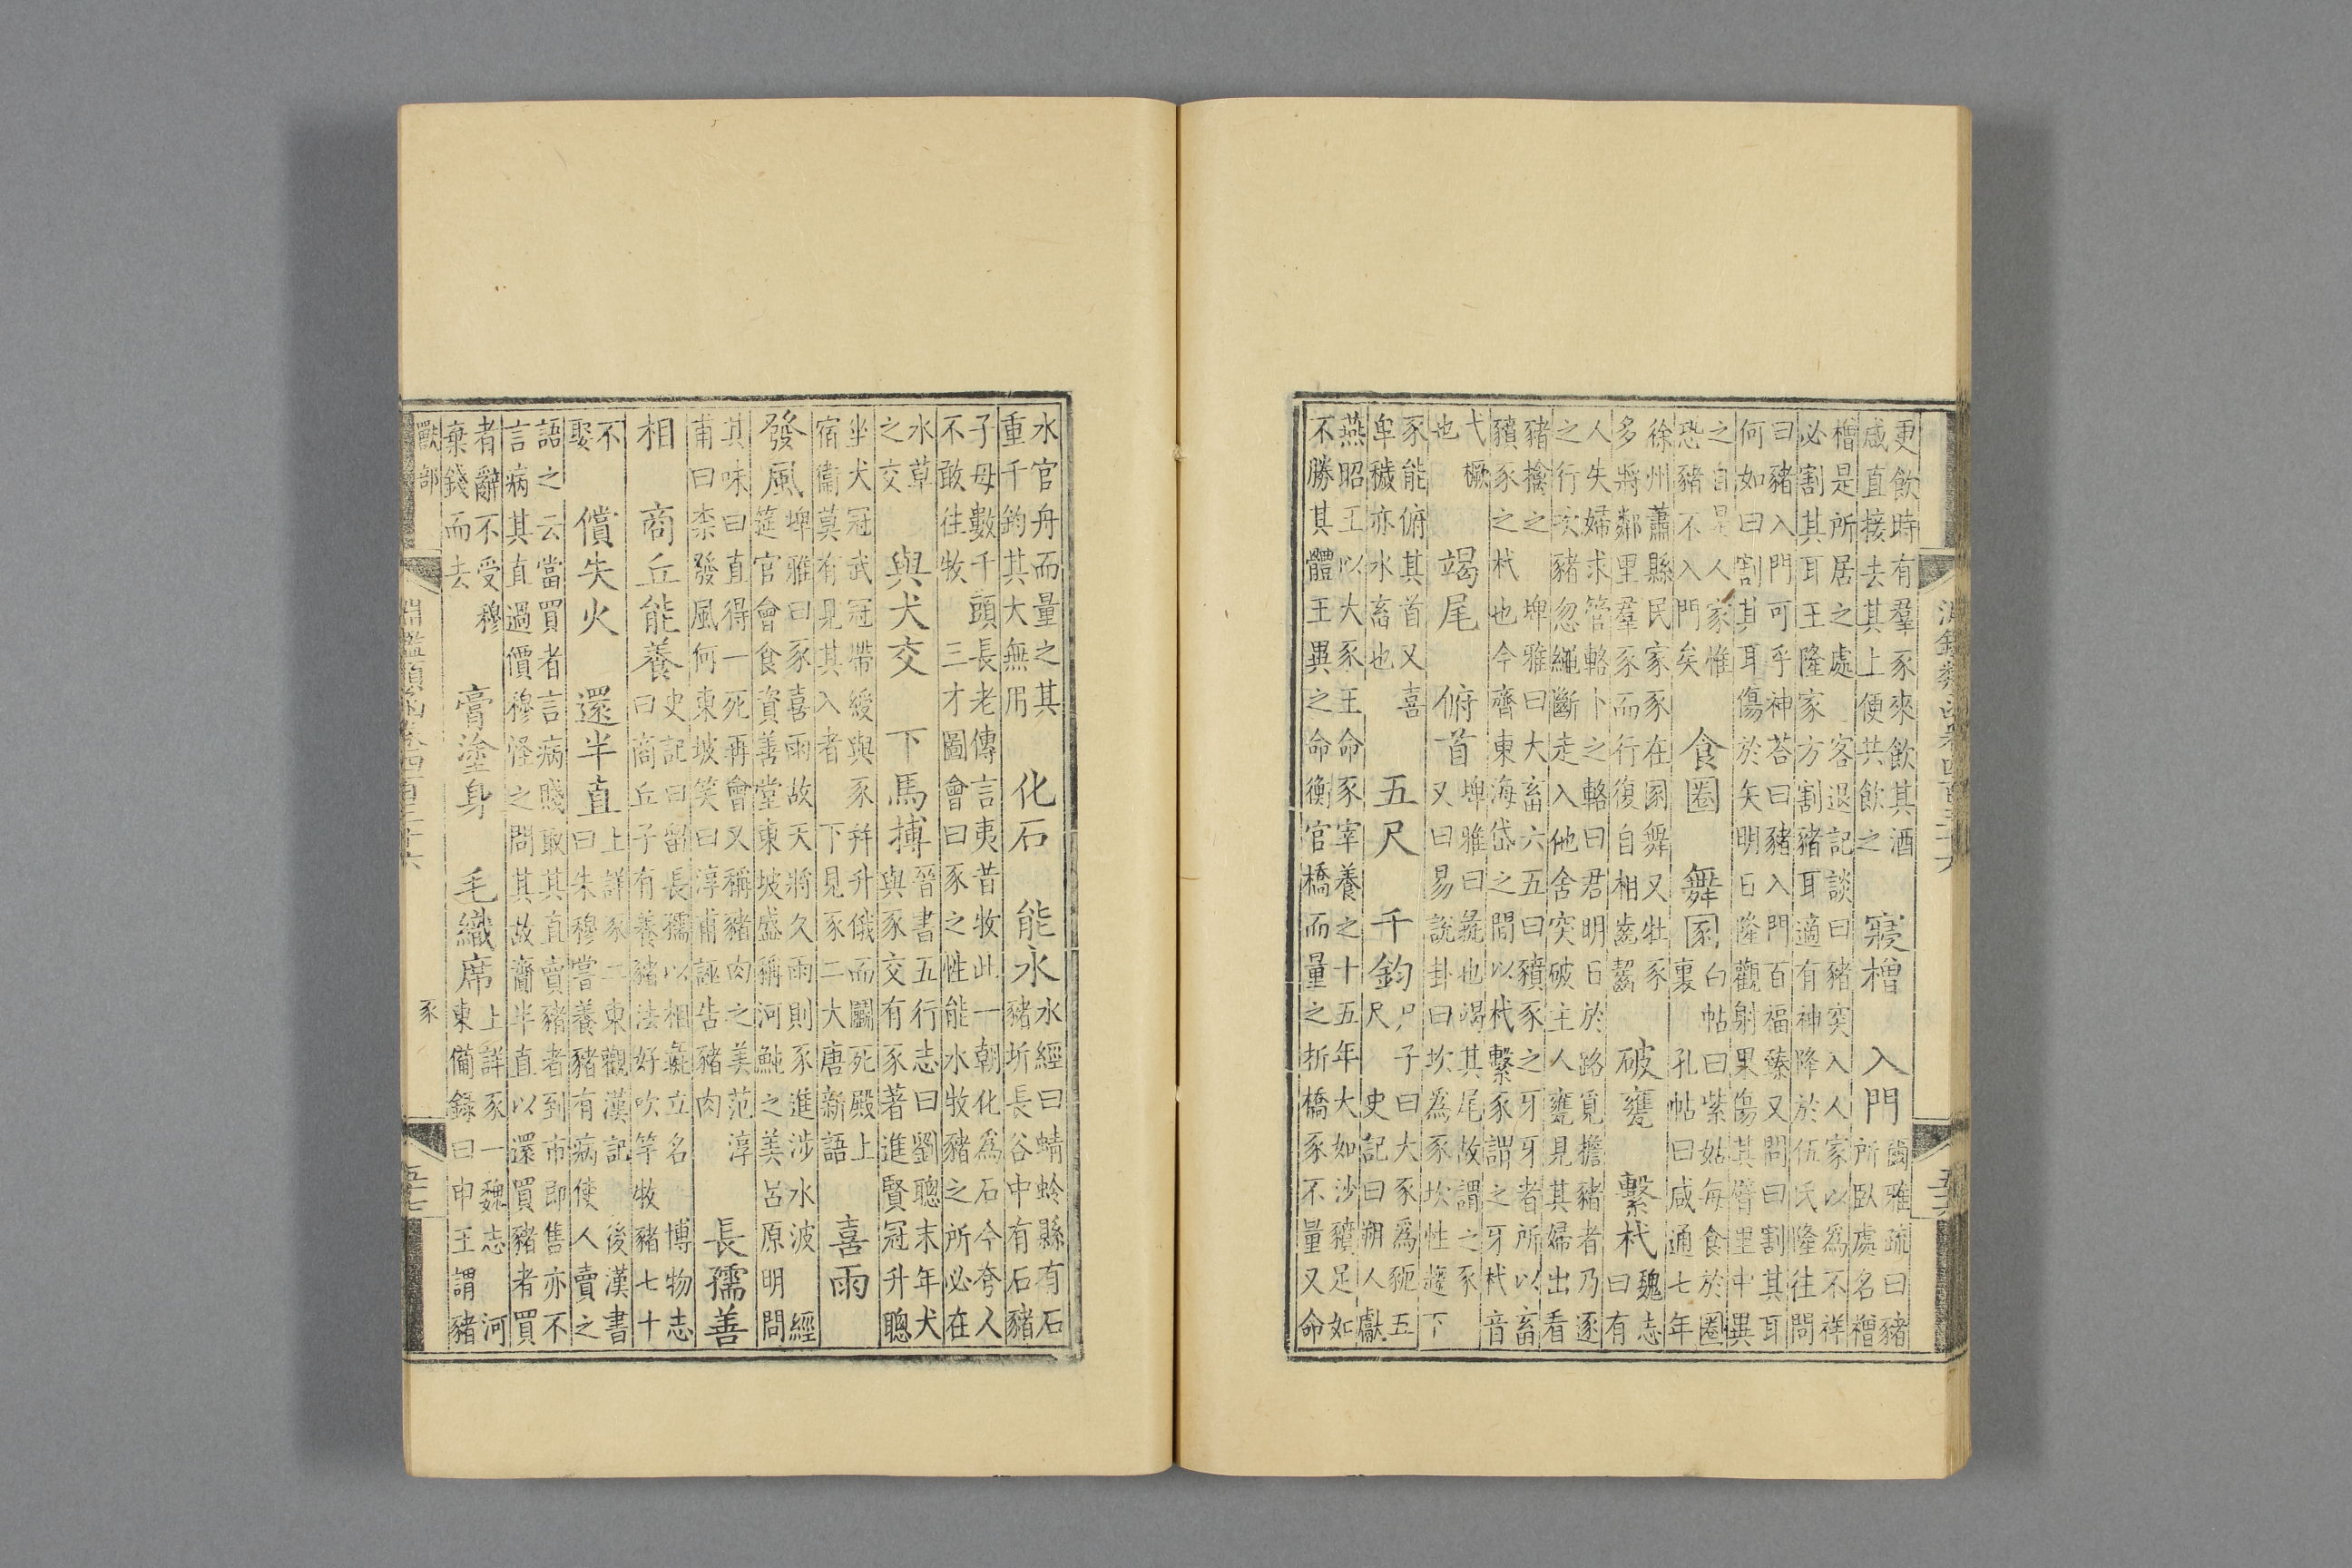 更飲時有羣豕來飲其酒
咸直接去其上便共飲之
寢橧　入門
爾雅疏曰豬
所臥處名橧
橧是所居之處　客退記談曰豬突入人家以為不祥
必割其耳王隆家方割豬耳適有神降於伍氏隆往問
曰豬入門可乎神荅曰豬入門百福臻又問曰割其耳
何如曰割其耳傷於矢明日隆觀射果傷其臂里中異
之自是人家惟
恐豬不入門矣
食圈　舞圂
白帖曰紫姑每食於圈
裏　孔帖曰咸通七年
徐州蕭縣民家豕在圂舞又牡豕
多將鄰里羣豕而行復自相齒齧
破甕　繫杙
魏志
曰有
人失婦求管輅卜之輅曰君明日於路覓擔豬者乃逐
之行次豬忽繩斷走入他舍突破主人甕見其婦出看
豬擒之　埤雅曰大畜六五曰豶豕之牙牙者所以畜
豶豕之杙也今齊東海岱之間以杙繫豕謂之牙杙音
弋橛
也
竭尾　俯首
埤雅曰彘也竭其尾故謂之豕
又曰易說卦曰坎為豕坎性趨下
豕能俯其首又喜
卑穢亦水畜也
五尺　千鈞
尸子曰大豕為豟五
尺　史記曰朔人獻
燕昭王以大豕王命豕宰養之十五年大如沙豶足如
不勝其體王異之命衡官橋而量之折橋豕不量又命
水官舟而量之其
重千鈞其大無用
化石　能水
水經曰蜻蛉縣有石
豬圻長谷中有石豬
子母數千頭長老傳言夷昔牧此一朝化為石今夸人
不敢往牧　三才圖會曰豕之性能水牧豬之所必在
水草
之交
與犬交　下馬搏
晉書五行志曰劉聰末年犬
與豕交有豕著進賢冠升聰
坐犬冠武冠帶綬與豕并升俄而鬬死殿上
宿衞莫有見其入者　下見豕二大唐新語
喜雨
發風
埤雅曰豕喜雨故天將久雨則豕進涉水波　經
筵官會食資善堂東坡盛稱河魨之美呂原明問
其味曰直得一死再會又稱豬肉之美范淳
甫曰柰發風何東坡笑曰淳甫誣告豬肉
長孺善
相　商丘能養
史記曰留長孺以相彘立名　博物志
曰商丘子有養豬法好吹竽牧豬七十
不
娶
償失火　還半直
上詳豕二東觀漢記　後漢書
曰朱穆嘗養豬有病使人賣之
語之云當買者言病賤取其直賣豬者到市即售亦不
言病其直過價穆怪之問其故齎半直以還買豬者買
者辭不受穆
棄錢而去
膏塗身　毛織席
上詳豕一魏志　河
東備錄曰申王謂豬
獸部　淵鑑類函卷四百三十六　豕　五十七